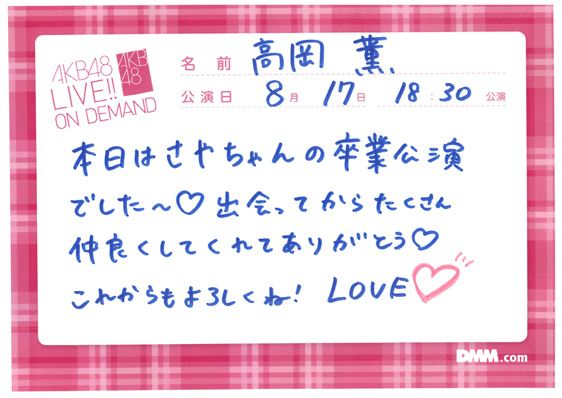 AKB48
LIVE!!
ON DEMAND
AKB
48
名前 高岡 薫
公演日 8月 17日 18:30 公演
本日はさやちゃんの卒業公演
でした〜♡出会ってからたくさん
仲良くしてくれてありがとう♡
これからもよろしくね! LOVE♡
DMM.com